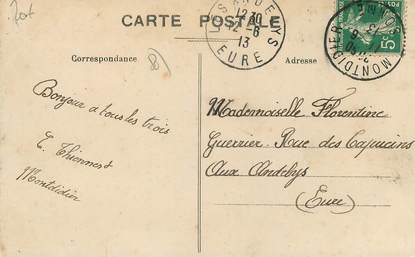 20f
CARTE POSTALE
LES ANDELYS
12 30
12 -6
13
EURE
MONTDIDIER
SOMME
5c
Correspondance
Adresse
Bonjour a tous les trois
E. Thiennest
Montdidier
Mademoiselle Florentine
Guerrier. Rue des Capucins
Aux Andelys
(Eure)